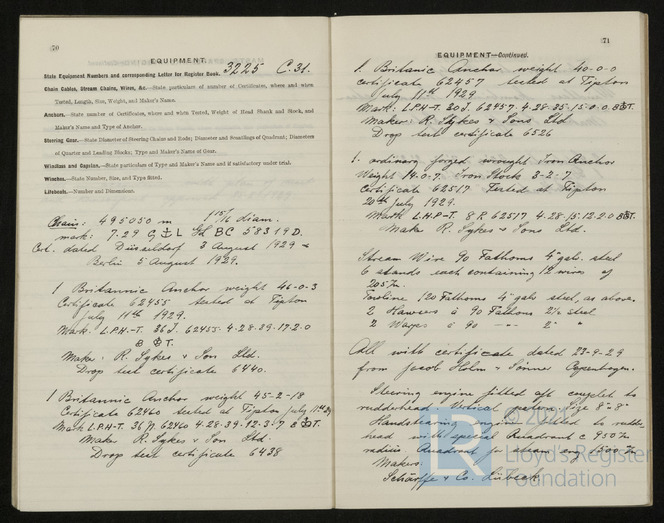 70
EQUIPMENT.
State Equipment Numbers and corresponding Letter for Register Book. 3225 C.31.
Chain Cables, Stream Chains, Wires, &c.—State particulars of number of Certificates, where and when
Tested, Length, Size, Weight, and Maker's Name.
Anchors.—State number of Certificates, where and when Tested, Weight of Head Shank and Stock, and
Maker's Name and Type of Anchor.
Steering Gear.—State Diameter of Steering Chains and Rods; Diameter and Scantlings of Quadrant; Diameters
of Quarter and Leading Blocks; Type and Maker's Name of Gear.
Windlass and Capstan.—State particulars of Type and Maker's Name and if satisfactory under trial.
Winches.—State Number, Size, and Type fitted.
Lifeboats.—Number and Dimensions.
Chains: 495.050 m 1 15/16 diam.
mark: 7-29 L BC 58319D.
Cert. dated Düsseldorf 3 August 1929 &
Berlin 5 August 1929.
1 Britannic Anchor weight 46-0-3
Certificate 62455 tested at Tipton
July 11th 1929.
Mark: L.P.H-T. 36 J. 62455 4-28-39-17-2-0
B T.
Maker: R. Sykes & Son Ltd.
Drop test certificate 6440.
1 Britannic Anchor weight 45-2-18
Certificate 62460 tested at Tipton July 11th 29
Mark L.P.H-T. 62460 4-28-39-12-3-7 T.
Maker R. Sykes & Son Ltd.
Drop test certificate 6438
71
EQUIPMENT—Continued.
1. Britanic Anchor weight 40-0-0
certificate 62457 tested at Tipton
July 11th 1929
Mark: L.P.H-T. 30 J. 62457 4-28-35-15-0-0 T.
Maker: R. Sykes & Sons Ltd.
Drop test certificate 6526
1. ordinary forged wrought Iron Anchor
Weight 14-0-7. Iron Stock 3-2-7
Certificate 62517 Tested at Tipton
20th July 1929.
Mark L.H.P-T. 8 R 62517 4-28-15-12-2-0 T.
Make R. Sykes & Sons Ltd.
Stream Wire 90 Fathoms 4" galv. steel
6 stands each containing 12 wires of
Towline 120 Fathoms 4" galv steel, as above.
2 Hawsers á 90 Fathoms 2½ steel
2 Warps á 90 — 2" "
All with certificate dated 23-9-29
from Jacob Holm & Sønner Copenhagen.
Steering engine fitted aft coupled to
rudderhead. Vertical Size 8" × 8"
Handsteering engine fitted to rudder-
head with special Quadrant
radius Quadrant for steam eng 1500
Makers:
Schärffe & Co. Lübeck
© 2021
LR
Lloyd's Register
Foundation